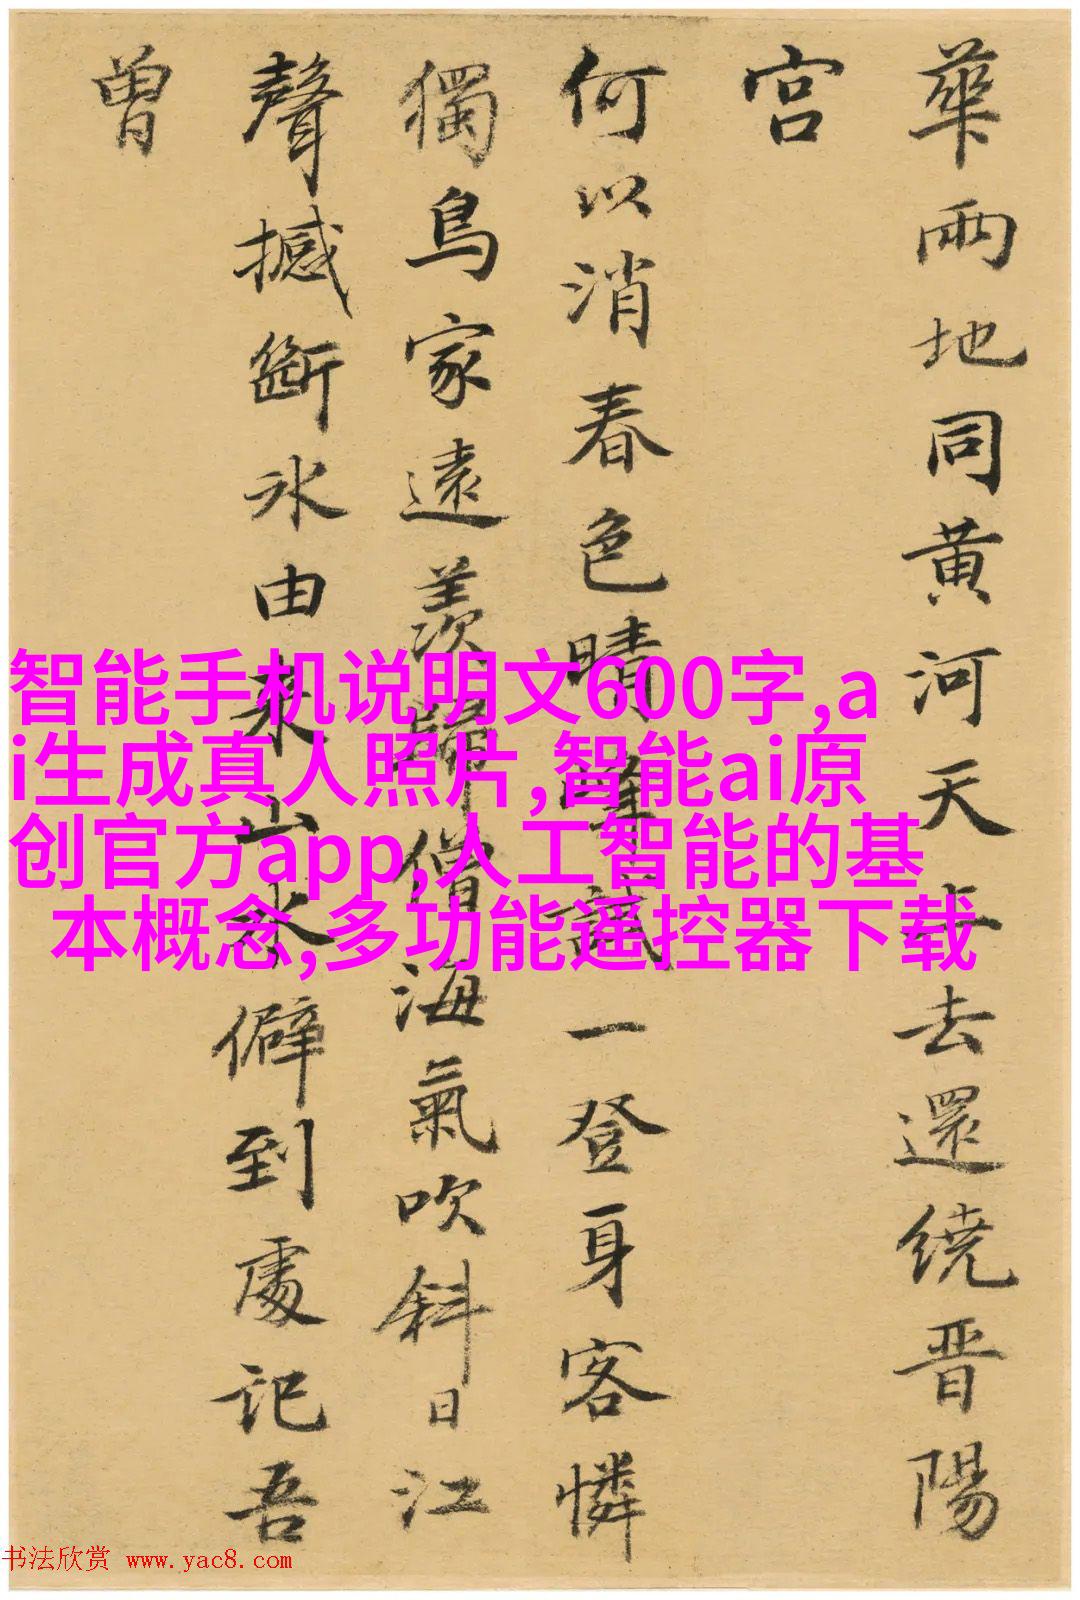 華兩地同黄河天上去還繞晋陽
宫
何以消春色晴峰試一登身客憐
獨鳥家遠羨歸僧海氣吹斜日江
聲撼斷氷由来山水僻到處記吾
曾
智能手机说明文600字,a
i生成真人照片,智能ai原
创官方app,人工智能的基
本概念,多功能遥控器下载
书法欣赏 www.yac8.com